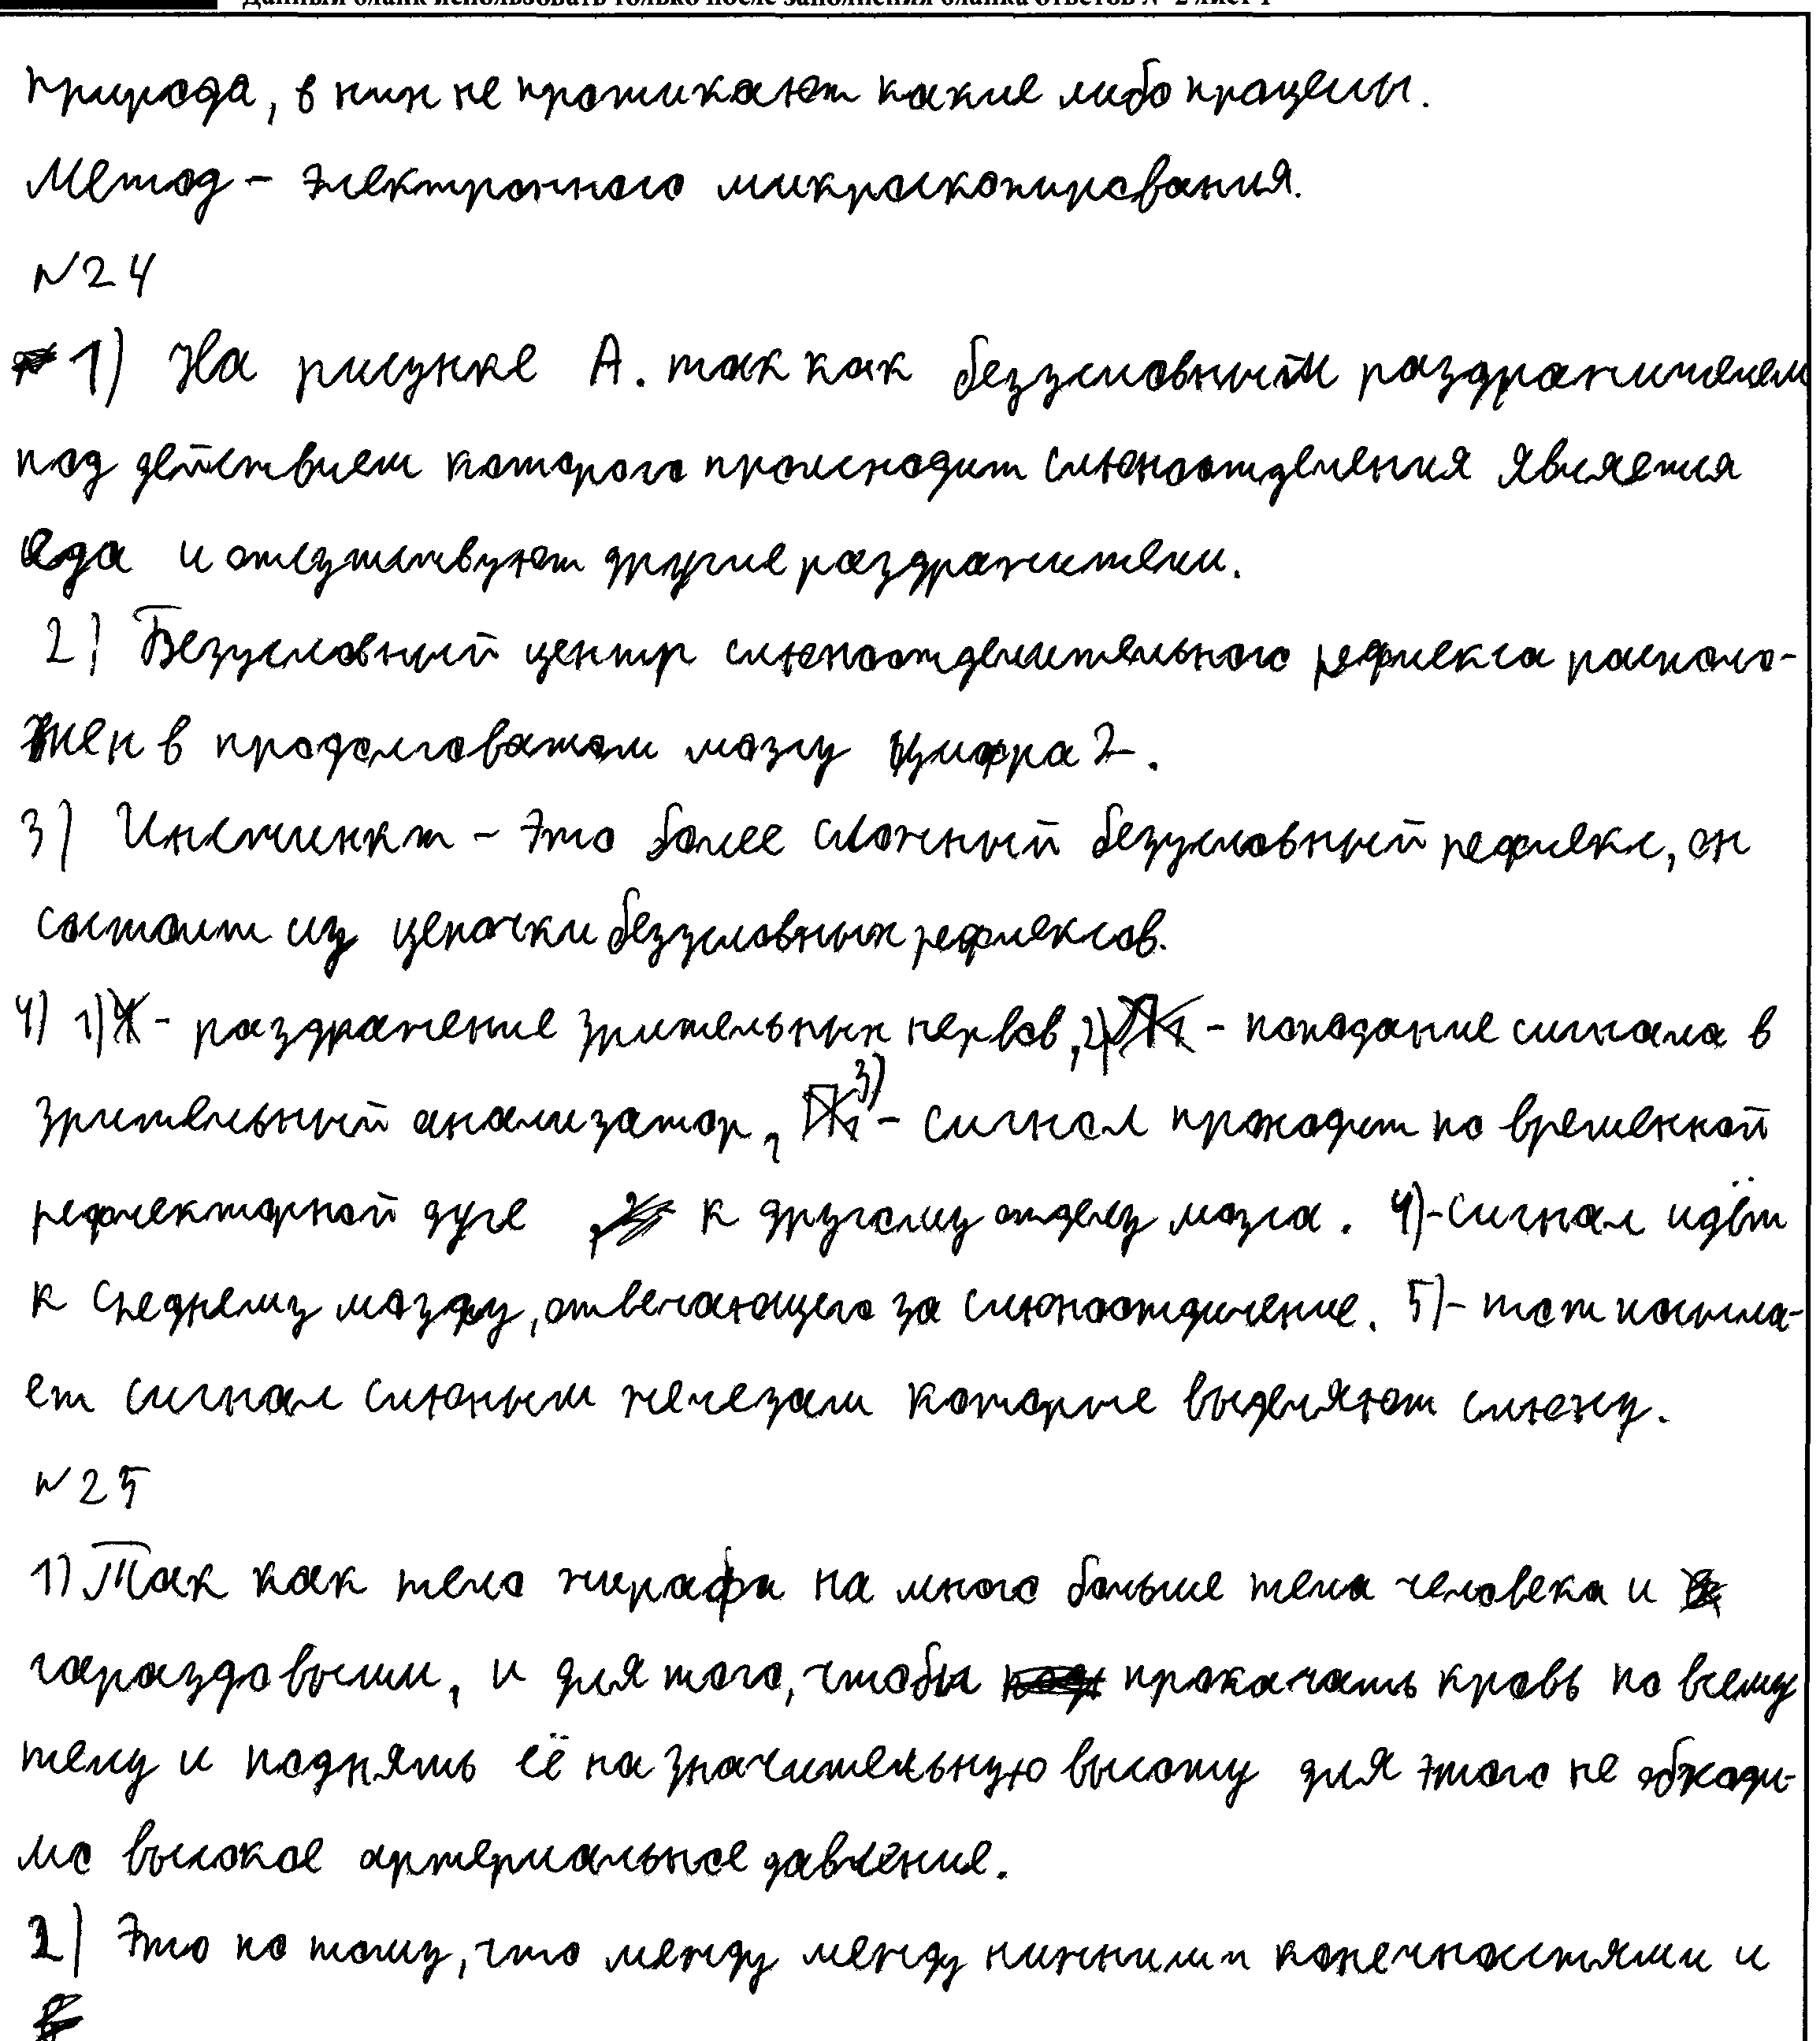 Данный бланк использовать только после заполнения бланка ответов № 2 лист 1
природа, в них не протикают какие либо процессы.
Метод - электронного микроскопирования.
№24
1) На рисунке А. так как безусловным раздражителем
под действием которого происходит слюноотделения является
еда и отсутствуют другие раздражители.
2) Безусловный центр слюноотделительного рефлекса располо-
жен в продолговатом мозгу цифра 2.
3) Инстинкт - это более сложный безусловный рефлекс, он
состоит из цепочки безусловных рефлексов.
4) 1) - раздражение зрительных нервов, 2) - попадание сигнала в
зрительный анализатор, 3) - сигнал проходит по временной
рефлекторной дуге к другому отделу мозга. 4)-сигнал идёт
к среднему мозгу, отвечающего за слюноотделение. 5)- тот посыла-
ет сигнал слюным железам которые выделяют слюну.
№25
1) Так как тело жирафа на много больше тела человека и
гараздо выше, и для того, чтобы прокачать кровь по всему
телу и поднять её на значительную высоту для этого не обходи-
мо высокое артериальное давление.
2) Это по тому, что между между нижними конечностями и